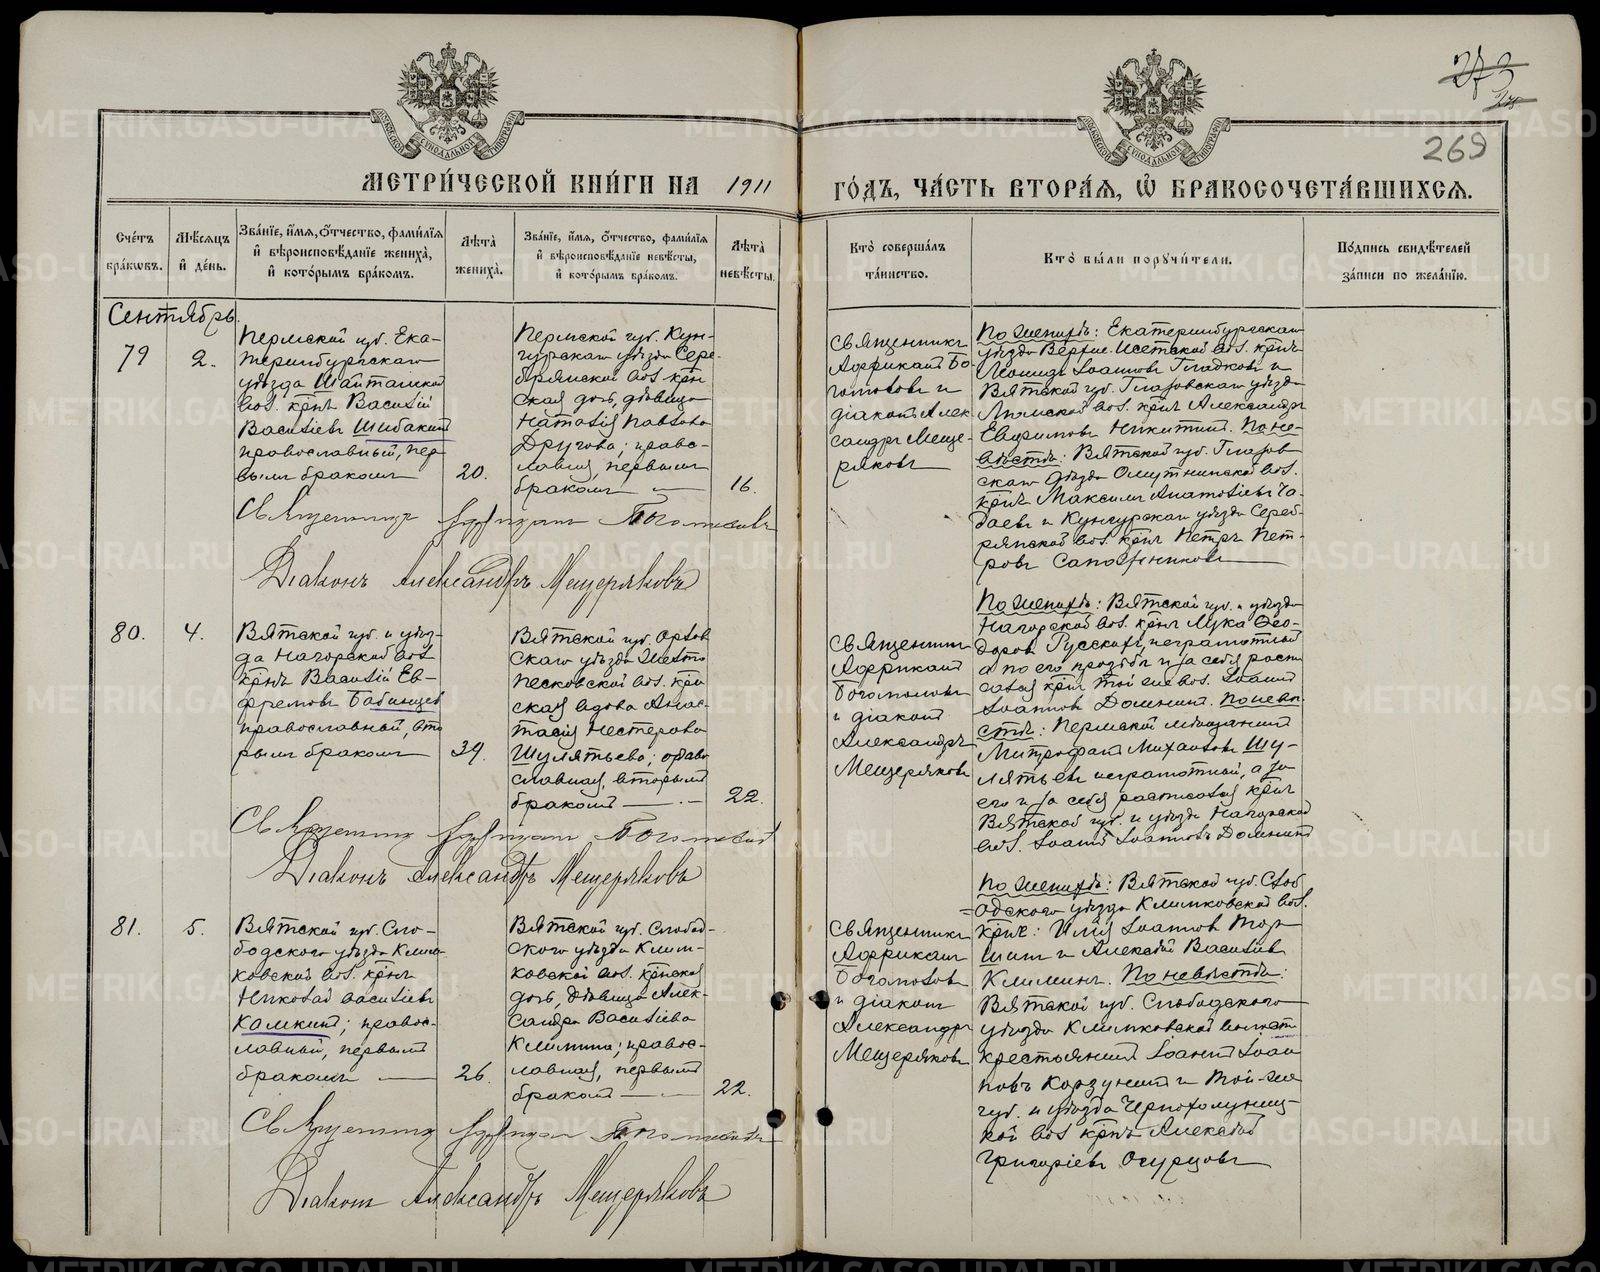 273
269
МЕТРИ́ЧЕСКОЙ КНИ́ГИ НА 1911 ГО́ДЪ, ЧА́СТЬ ВТОРА́Ѧ, Ѽ БРАКОСОЧЕТА́ВШИХСѦ.
Сче́тъ бра́кωвъ.
Мѣ́сѧцъ и҆ де́нь.
Зва́нїе, и҆́мѧ, ѻ҆́тчество, фами́лїѧ и҆ вѣроисповѣ́данїе жениха̀, и҆ кото́рымъ бра́комъ.
Лѣ́та жениха̀.
Зва́нїе, и҆́мѧ, ѻ҆́тчество, фами́лїѧ и҆ вѣроисповѣ́данїе невѣ́сты, и҆ кото́рымъ бра́комъ.
Лѣ́та невѣ́сты.
Кто̀ соверша́лъ та́инство.
Кто̀ бы́ли порꙋчи́тели.
По́дпись свидѣ́телей за́писи по жела́нїю.
Сентябрь.
79
2.
Пермской губ. Ека-
теринбургскаго
уѣзда Шайтанской
вол. крнъ Василій
Васильевъ Шибакинъ
православный, пер
вымъ бракомъ
20.
Пермской губ. Кун-
гурскаго уѣзда Сере-
брянской вол. крн
ская дочь, дѣвица
Наталія Павлова
Другова; право-
славная, первымъ
бракомъ
16.
Священникъ
Африканъ Бо-
гомоловъ и
діаконъ Алек
сандръ Меще-
ряковъ
По женихѣ: Екатеринбургскаго
уѣзда Верхне-Исетской вол. крнъ
Леонидъ Іоанновъ Гладковъ и
Вятской губ. Глазовскаго уѣзда
Лыпской вол. крнъ Александръ
Евфимовъ Никитинъ. По не-
вѣстѣ: Вятской губ. Глазов
скаго уѣзда Омутнинской вол.
крнъ Максимъ Анатоліевъ Ча-
даевъ и Кунгурскаго уѣзда Сереб-
рянской вол. крнъ Петръ Пет-
ровъ Сапожниковъ
Священникъ Африканъ Богомоловъ
Діаконъ Александръ Мещеряковъ
80.
4.
Вятской губ. и уѣз-
да Нагорской вол.
крнъ Василій Ев-
фремовъ Бабинцевъ
православный, вто
рымъ бракомъ
39.
Вятской губ. Орлов
скаго уѣзда Желто
песковской вол. крн
ская вдова Анас-
тасія Нестерова
Шулятьева; право
славная, вторымъ
бракомъ
22.
Священникъ
Африканъ
Богомоловъ
и діаконъ
Александръ
Мещеряковъ
По женихѣ: Вятской губ. и уѣзда
Нагорской вол. крнъ Лука Ѳео-
доровъ Русскихъ, неграмотный
а по его прозьбѣ и за себя распи
сался крнъ той же вол. Іоаннъ
Іоанновъ Доминъ. По невѣ-
стѣ: Пермской мѣщанинъ
Митрофанъ Михаиловъ Шу-
лятьевъ неграмотный, а за
его и за себя расписался крнъ
Вятской губ. и уѣзда Нагорской
вол. Іоаннъ Іоанновъ Доминъ
Священникъ Африканъ Богомоловъ
Діаконъ Александръ Мещеряковъ
81.
5.
Вятской губ. Сло-
бодского уѣзда Клим-
ковской вол. крнъ
Николай Васильевъ
Камкинъ; правос-
лавный, первымъ
бракомъ
26.
Вятской губ. Слобод-
ского уѣзда Клим-
ковской вол. крнская
дочь, дѣвица Алек-
сандра Васильева
Климина; правос-
лавная, первымъ
бракомъ
22.
Священникъ
Африканъ
Богомоловъ
и діаконъ
Александръ
Мещеряковъ
По женихѣ: Вятской губ. Слоб
одского уѣзда Климковской вол.
крне: Илія Іоанновъ
и Алексѣй Васильевъ
Климинъ. По невѣстѣ:
Вятской губ. Слободского
уѣзда Климковской волост
крестьянинъ Іоаннъ Іоан
новъ Корзунинъ и той-же
губ. и уѣзда Чернохолуниц-
кой вол. крнъ Алексѣй
Григоріевъ Огурцовъ
Священникъ Африканъ Богомоловъ
Діаконъ Александръ Мещеряковъ
METRIKI.GASO-URAL.RU